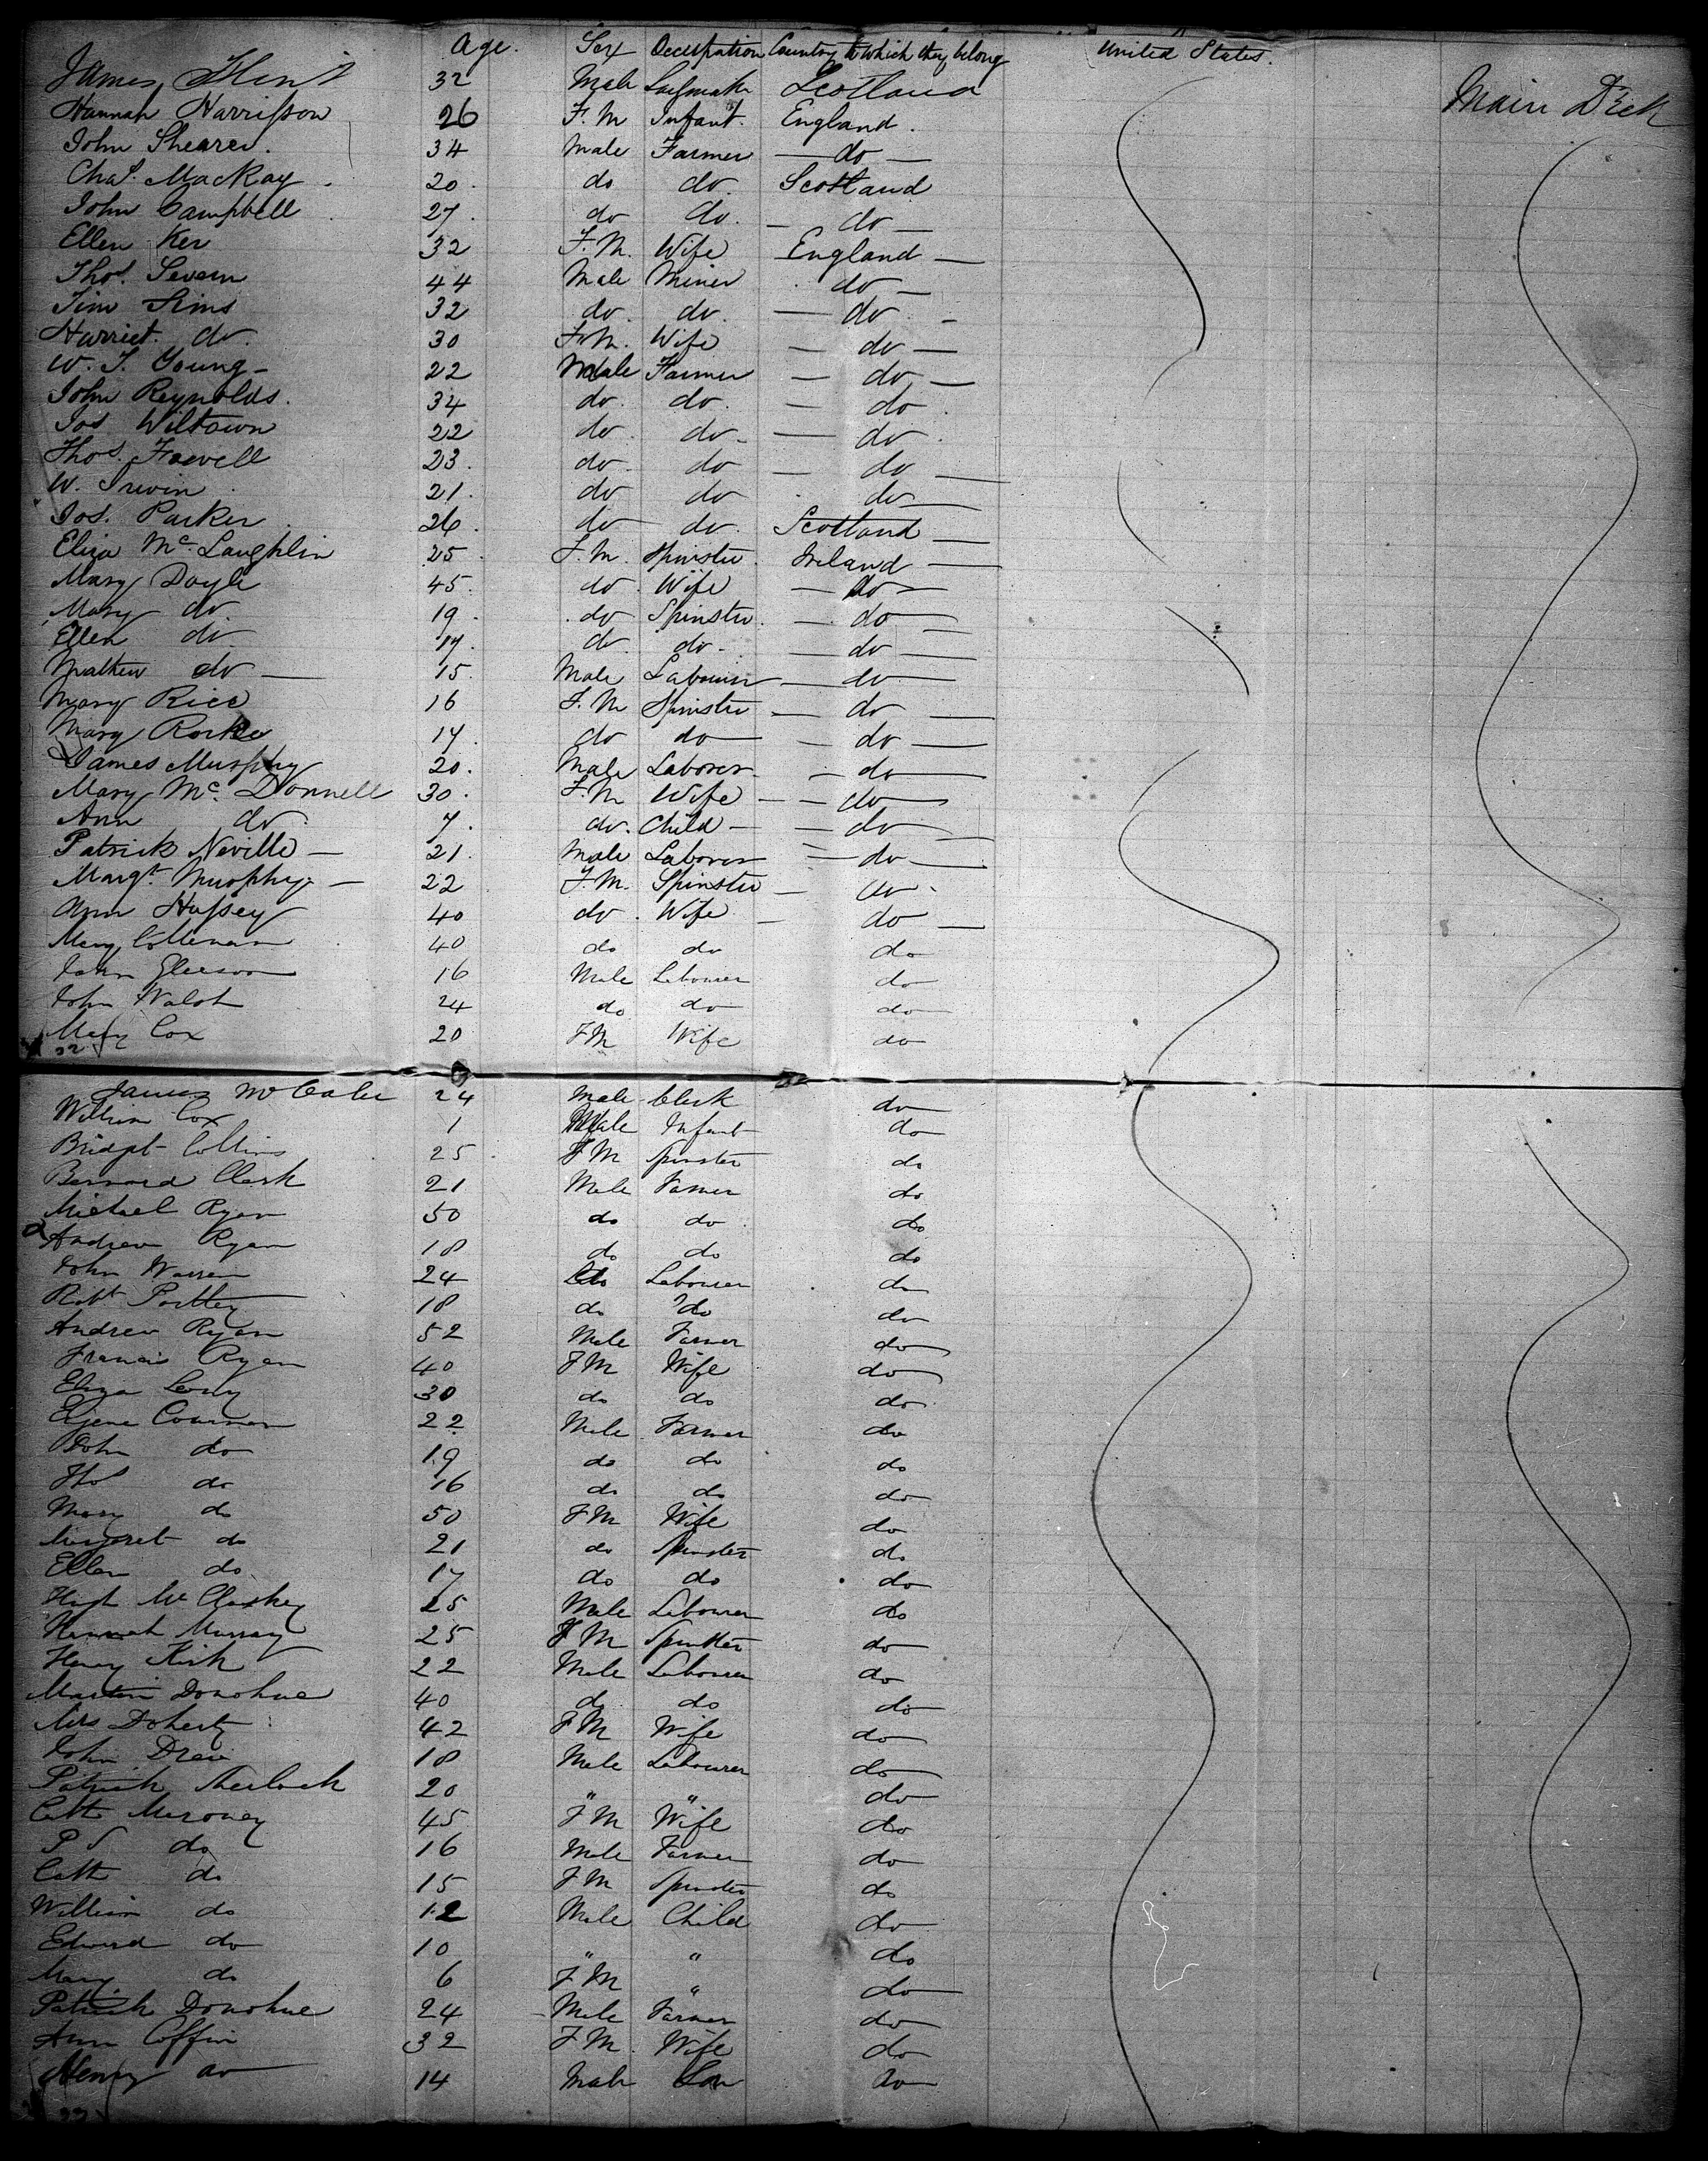 Age. Sex Occupation Country to which they belong United States.
James Flint 32 Male Scotland Main Deck
Hannah Harrisson 26 F.M Infant. England.
John Shearer. 34 Male Farmer — do —
Chas. MacKay. 20. do do. Scotland
John Campbell 27. do do. — do —
Ellen Ker 32 F.M. Wife England —
Thos. Severn 44 Male Miner do —
Jim Sims 32 do. do. — do —
Harriet. do. 30 F.M. Wife — do —
W. T. Young — 22 Male Farmer — do —
John Reynolds. 34 do. do. — do.
Jos Wiltown 22 do. do — do.
Thos. Fowell 23. do. do — do —
W. Irwin. 21. do do do —
Jos. Parker. 26. do do. Scotland —
Eliza Mc. Laughlin 25. F.M. Spinster. Ireland —
Mary Doyle 45. do. Wife — do —
Mary do. 19. do Spinster. — do —
Ellen do 17. do do. — do —
Mathew do — 15. Male Labourer — do —
Mary Rice 16 F.M Spinster — do —
Mary Rorke 17. do do — do —
James Murphy 20. Male Laborer — do —
Mary Mc. Donnell 30. F.M Wife — do —
Ann do. 7. do. Child — do —
Patrick Neville — 21. Male Laborer — do —
Margt. Murphy — 22 F.M. Spinster — do.
Ann Hussey 40 do. Wife — do —
Mary 40 do do do
John Gleeson 16 Male Labourer do
John Walsh 24 do do do
Mary Cox 20 FM Wife do
32
James McCabe 24 Male Clerk do
William Cox 1 Male Infant do
Bridgt Collins 25. FM Spinster do
Bernard Clark 21 Male Farmer do
Michael Ryan 50 do do do
Andrew Ryan 18 do do do
John Warren 24 do Labourer do
Robt Portley 18 do do do
Andrew Ryan 52 Male Farmer do
Francis Ryan 40 FM Wife do
Eliza 30 do do do
22 Male Farmer do
John do 19 do do do
Thos do 16 do do do
Mary do 50 FM Wife do
Margaret do 21 do Spinster do
Ellen do 17 do do do
Hugh McCloskey 25 Male Labourer do
Hannah Murray 25 FM Spinster do
Henry Kirk 22 Male Labourer do
Martin Donohue 40 do do do
Mrs Doherty 42 FM Wife do
John Drew 18 Male Labourer do
Patrick Sherlock 20 " " do
Cath Meroney 45 FM Wife do
P do 16 Male Farmer do
Cath do 15 FM Spinster do
William do 12 Male Child do
Edward do 10 " " do
Mary do 6 FM " do
Patrick Donohue 24 Male Farmer do
Ann Coffin 32 FM. Wife do
Henry do 14 Male Son do
33